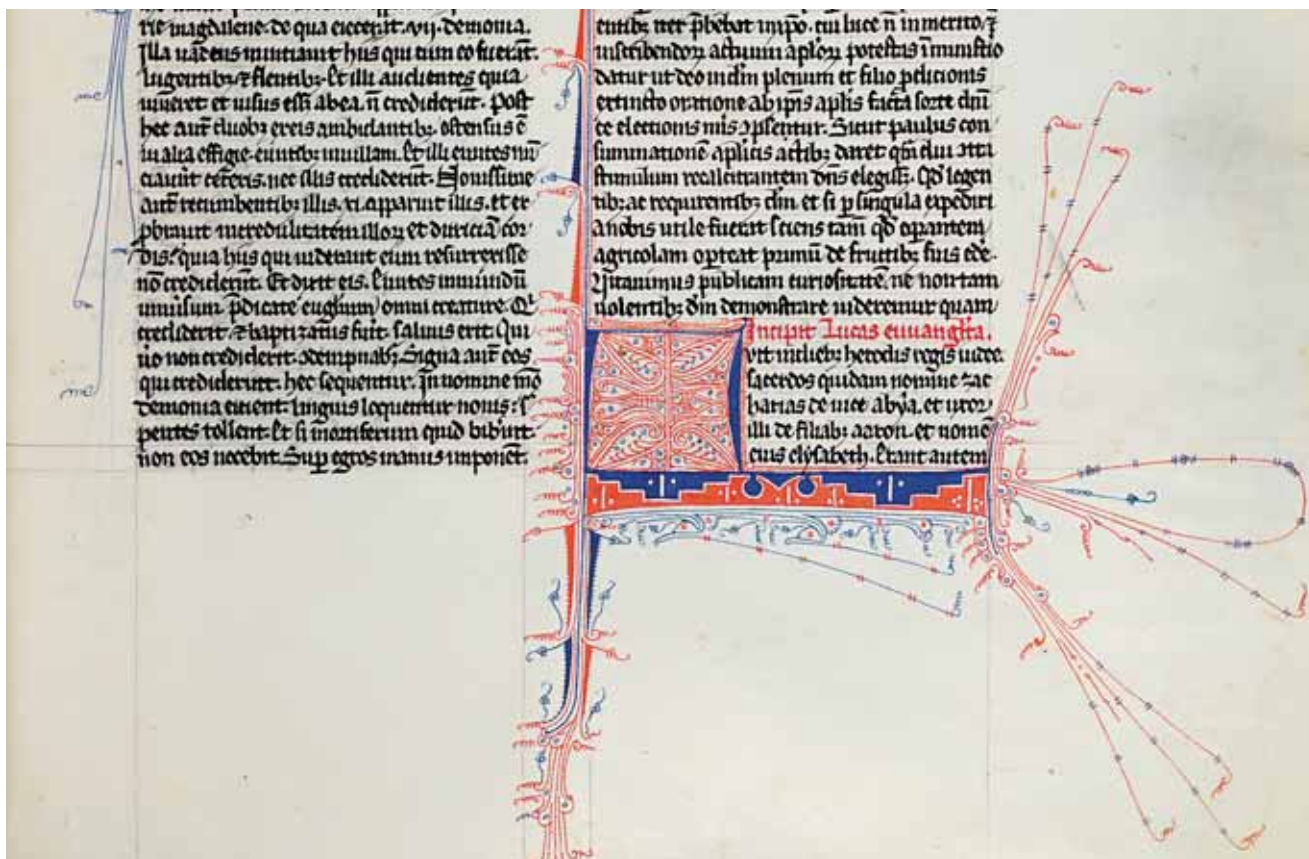 rie magdalene. de qua eiecerat .vij. demonia.
Illa uadens nuntiauit hiis qui cum eo fuerant.
lugentibꝫ ⁊ flentibꝫ. Et illi audientes quia
uiueret et uisus eēt ab ea. n̄ crediderūt. Post
hec aut̄ duobꝫ ex eis ambulantibꝫ. ostensus ē
in alia effigie. euntibꝫ in uillam. Et illi euntes nū
ciauūt ceteris. nec illis crediderūt. Nouissime
aut̄ recumbentibꝫ illis .xi. apparuit illis. et ex
ꝓbrauit incredulitatem illoꝝ et duriciā cor
dis. quia hiis qui uiderant eum resurrexisse
nō crediderūt. Et dixit eis. Euntes in mūdū
uniuersum p̄dicate euglium omni creature. Qi
crediderit ⁊ baptizatus fuit. saluus erit. Qui
uo non crediderit. ꝯdempnabit᷑. Signa aut̄ eos
qui crediderint. hec sequentur. In nomine mō
demonia eicient. linguis loquentur nouis. s̄
pentes tollent. Et si mortiferum quid bibīnt.
non eos nocebit. Suꝑ egros manus imponēt.
entibꝫ nec p̄bebat in xp̄o. cui luce n̄ inmerito. ⁊
in scribendoꝝ actuum aploꝝ potestas ī ministio
datur ut deo in dm̄ plenum et filio pdicionis
extincto oratione ab ip̄is aplis facta sorte dn̄i
ce electionis nūs ꝯpleretur. Sicut paulus con
summationē aplicis actibꝫ daret qm̄ diu ꝯtra
stimulum recalcitrantem dn̄s elegiss̄. Qd̄ legen
tibꝫ ac requirentibꝫ dm̄. et si ꝑ singula expediri
a nobis utile fuerat sciens tam̄ qd̄ oꝑantem
agricolam oꝑteat primū de fructibꝫ suis edē.
Uitauimus publicam curiositatē. ne non tam
uolentibꝫ dm̄ demonstrare uideremur quam
Incipit Lucas euuanglista.
Uit in diebꝫ herodis regis iudee
sacerdos quidam nomine zac
harias de uice abya. et uxor
illi de filiabꝫ aaron. et nomē
eius elysabeth. Erant autem